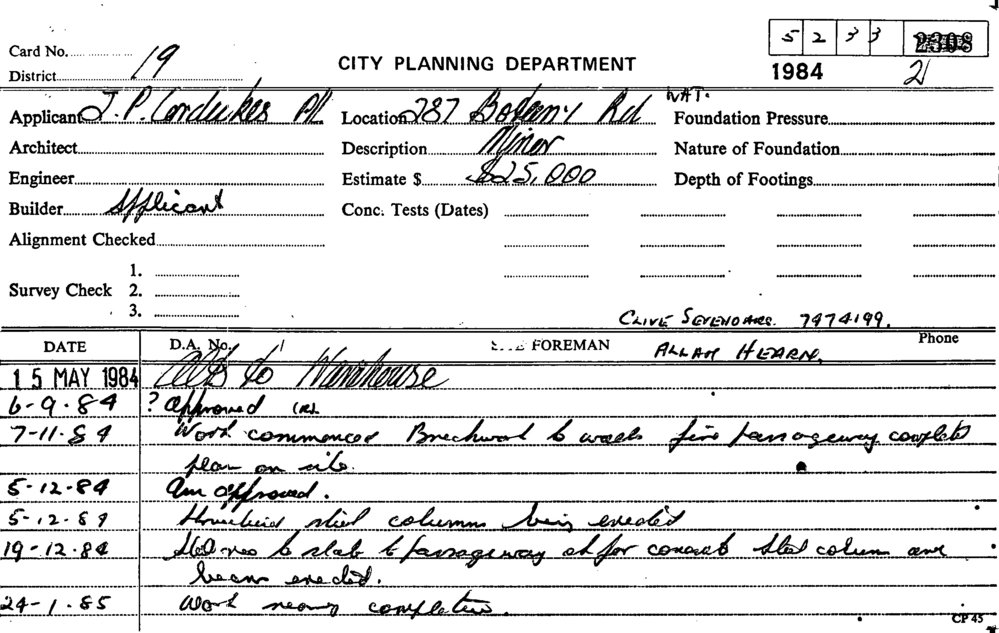 5 2 3 3
Card No. 19
District
CITY PLANNING DEPARTMENT
1984 2
Applicant J.P. Cordukes P/L Location 287 Botany Rd WAT. Foundation Pressure
Architect Description Minor Nature of Foundation
Engineer Estimate $ $25,000 Depth of Footings
Builder Applicant Conc. Tests (Dates)
Alignment Checked
1.
Survey Check 2.
3.
CLIVE 7974199.
DATE D.A. No. FOREMAN ALLAN HEARN. Phone
15 MAY 1984 to Warehouse
6-9-84 ? approved
7-11-84 Work commenced Brickwork to walls fire passageway complete
plan on site.
5-12-84 am approved.
5-12-84 steel columns being erected
19-12-84 to slab to passageway for concrete steel column and
beam erected.
24-1-85 Work completion.
CP 45